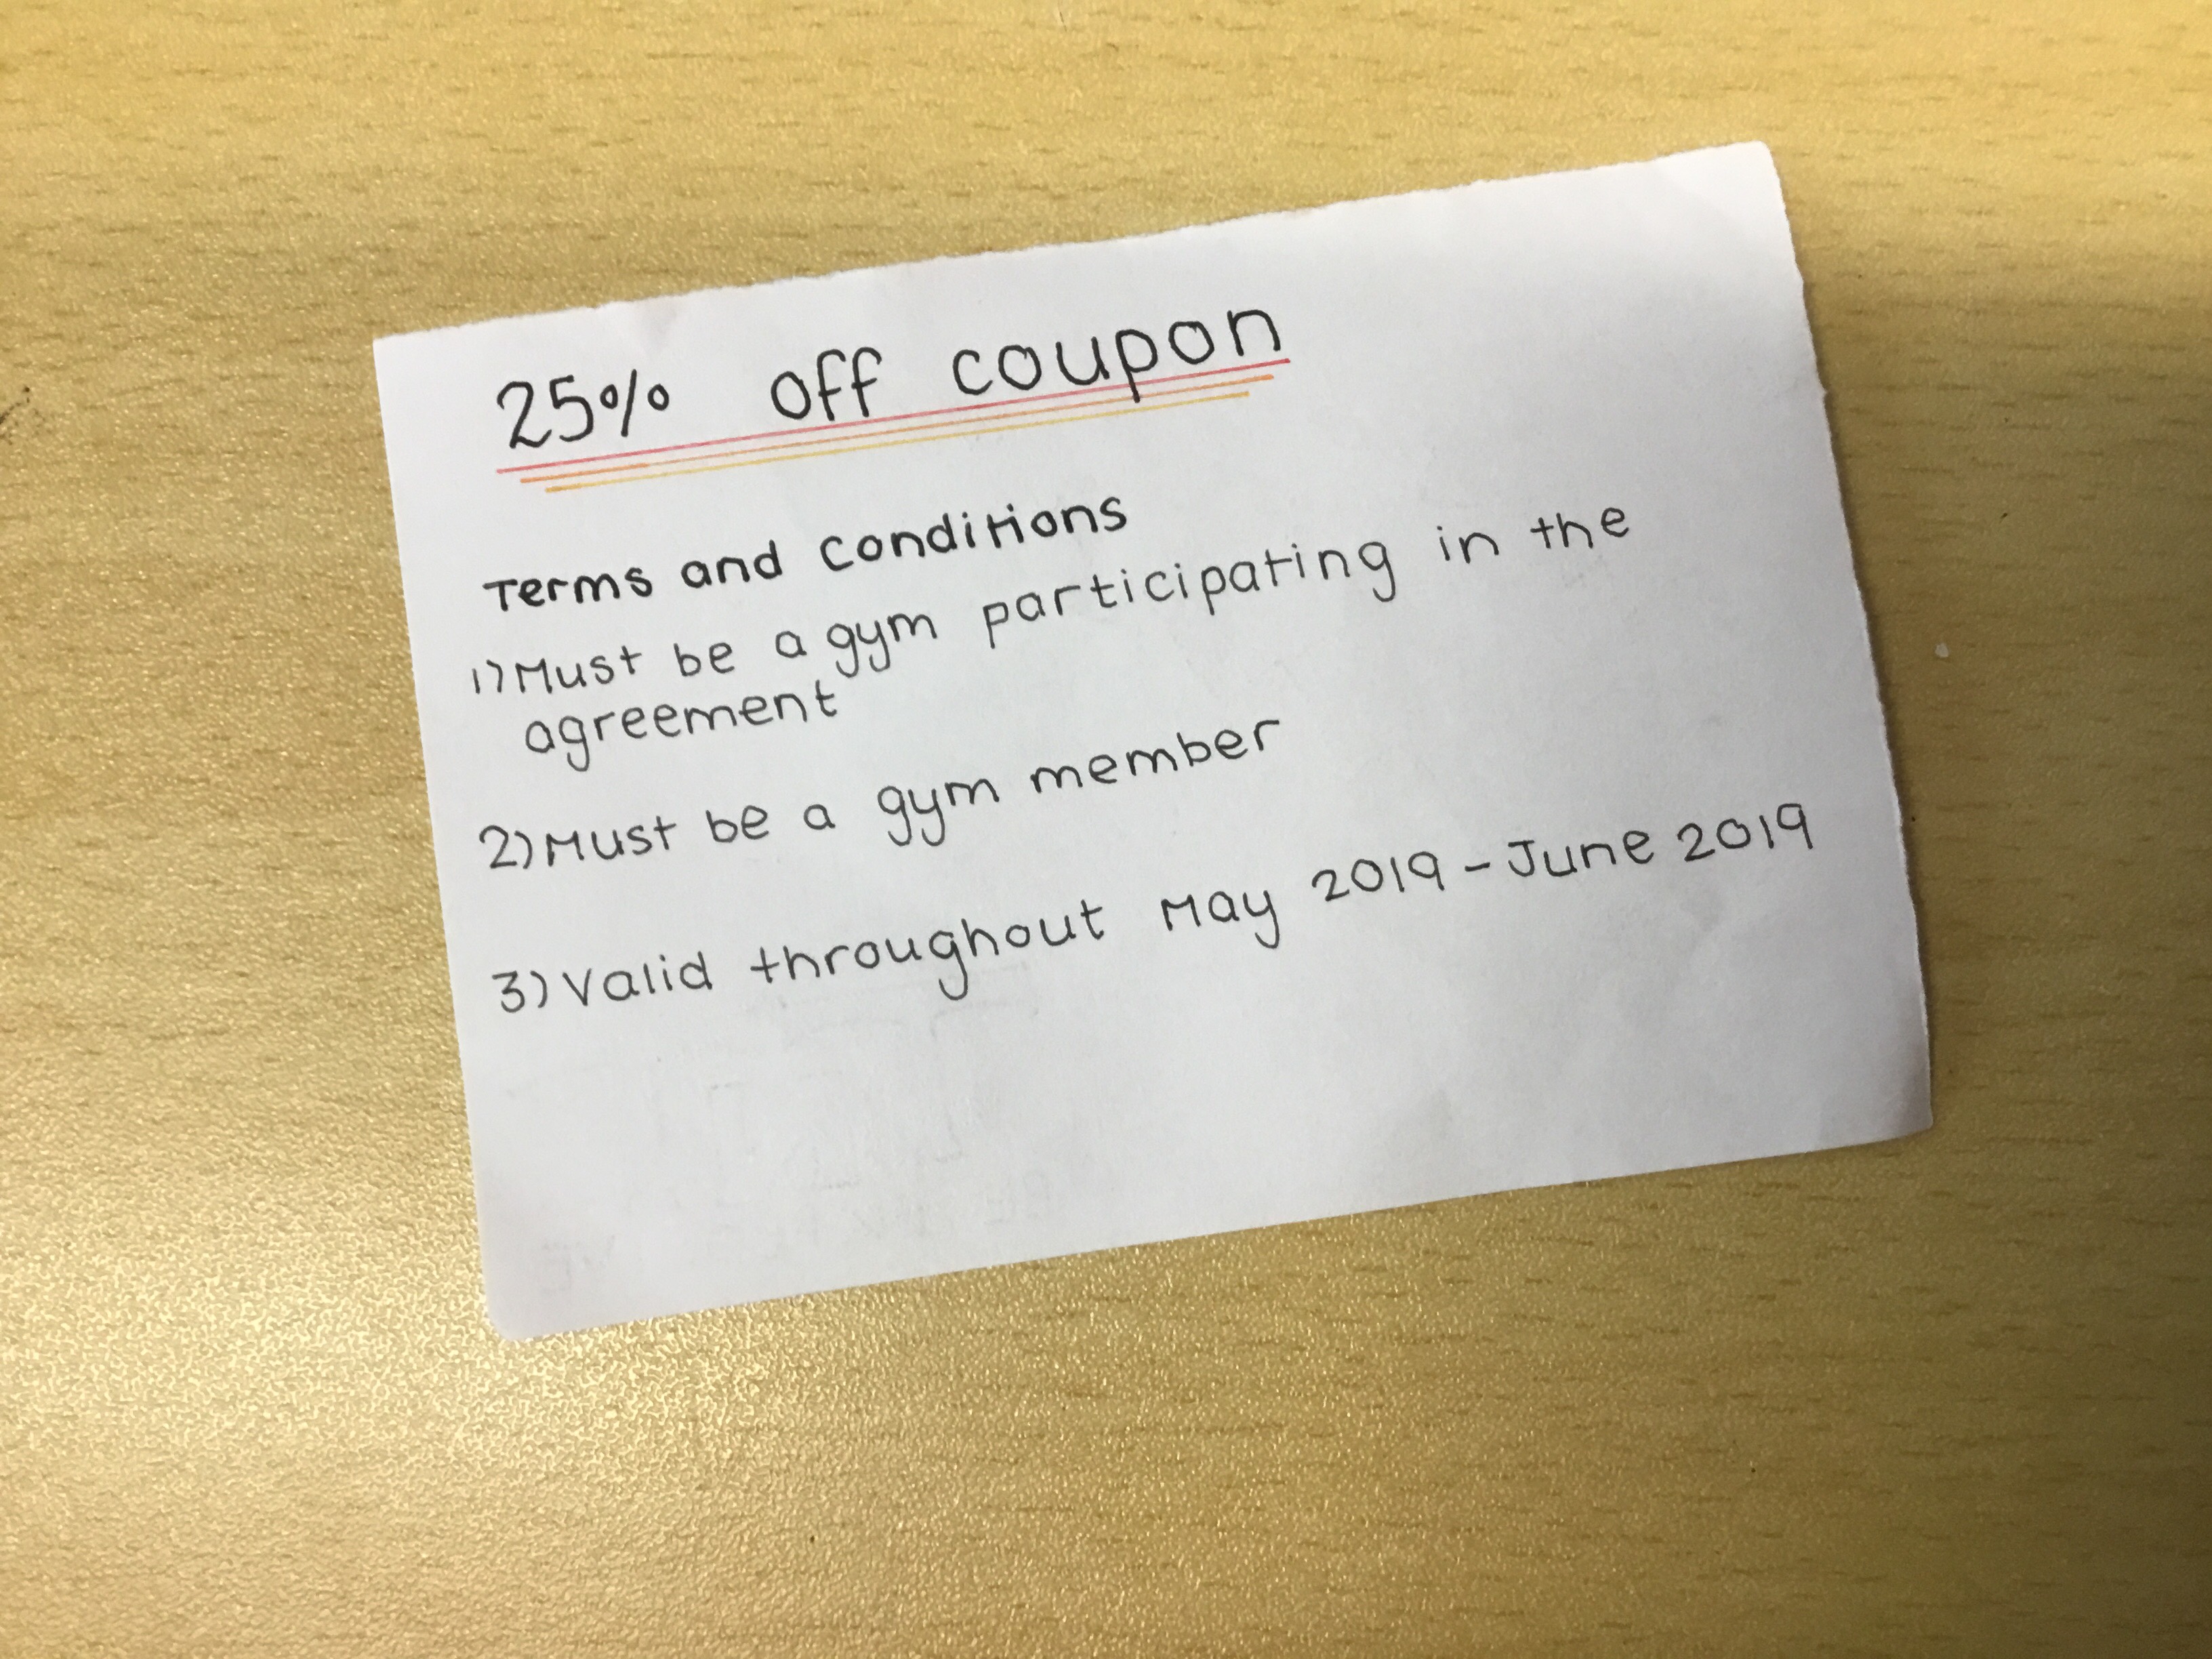 25% off coupon
Terms and conditions
1) Must be a gym participating in the
agreement
2) Must be a gym member
3) Valid throughout May 2019 - June 2019